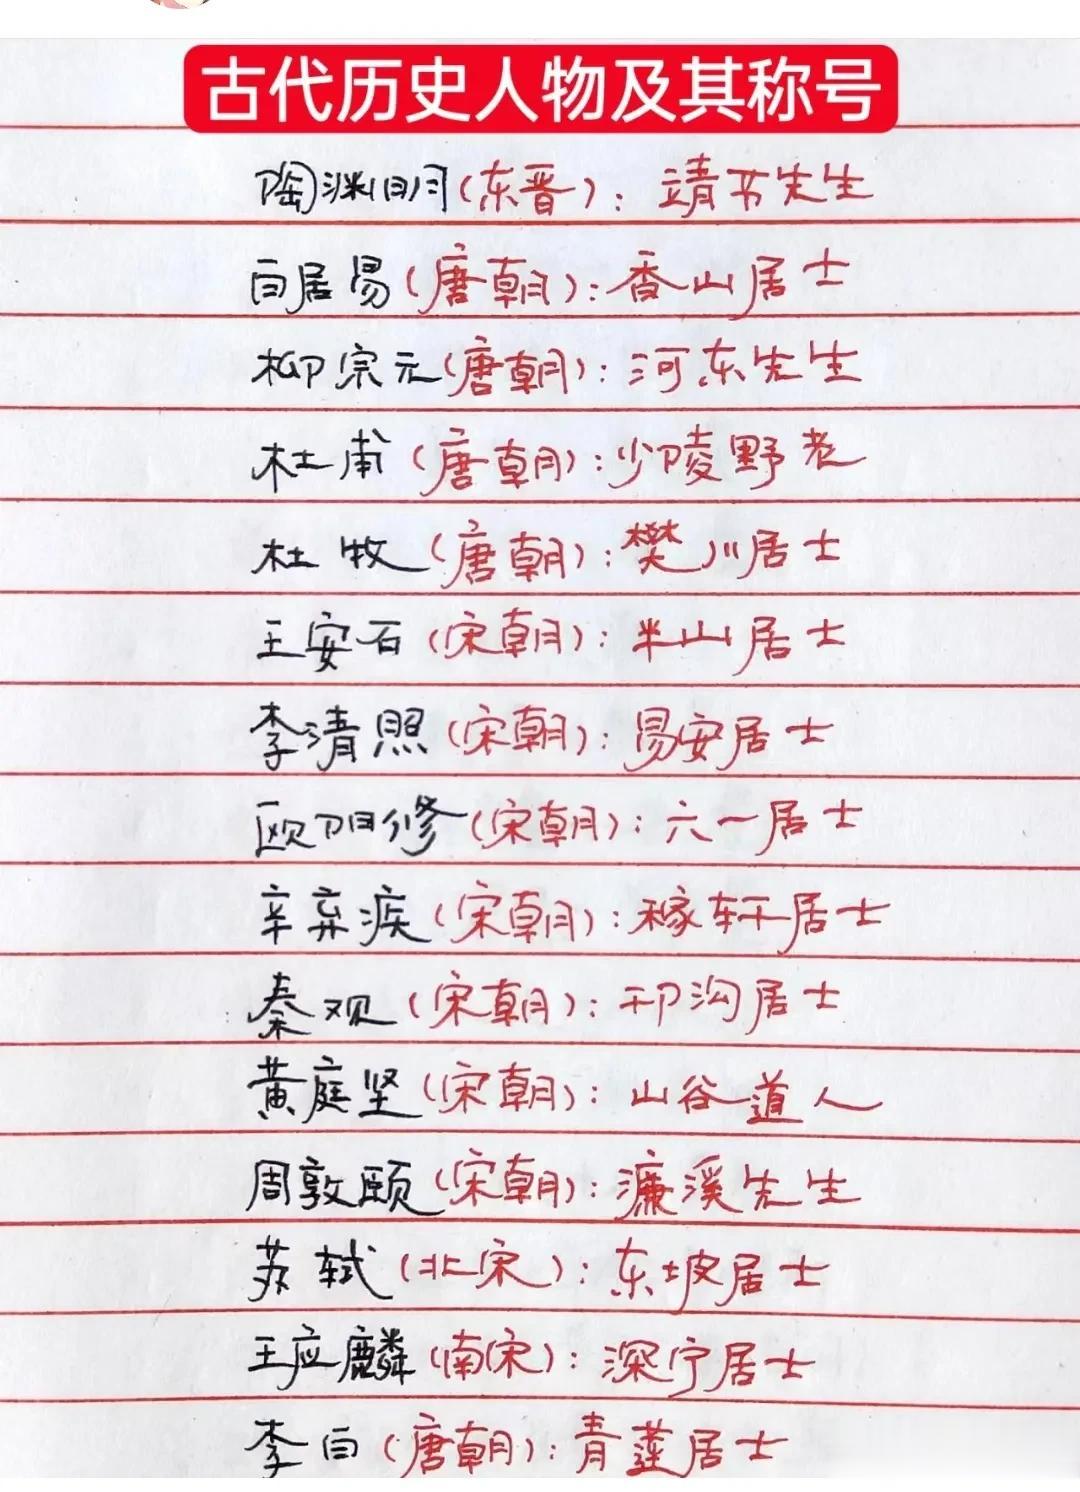 古代历史人物及其称号
陶渊明(东晋): 靖节先生
白居易(唐朝):香山居士
柳宗元(唐朝): 河东先生
杜甫(唐朝):少陵野老
杜牧(唐朝):樊川居士
王安石(宋朝): 半山居士
李清照(宋朝): 易安居士
欧阳修(宋朝): 六一居士
辛弃疾(宋朝):稼轩居士
秦观(宋朝): 邗沟居士
黄庭坚(宋朝): 山谷道人
周敦颐(宋朝):濂溪先生
苏轼(北宋): 东坡居士
王应麟(南宋): 深宁居士
李白(唐朝):青莲居士